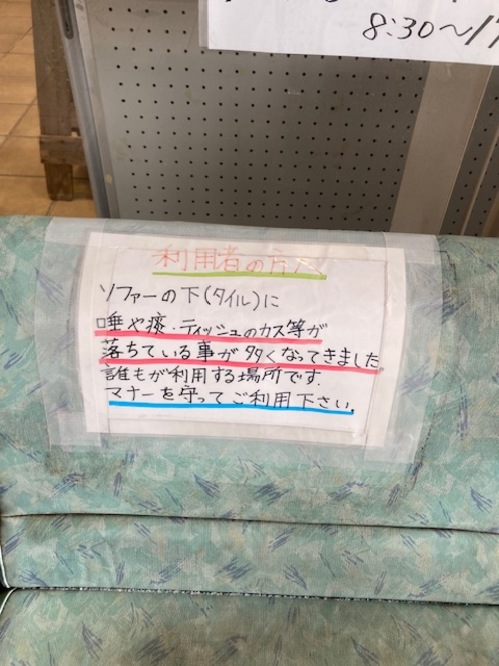 8:30〜17
利用者の方へ
ソファーの下(タイル)に
唾や痰・ティッシュのカス等が
落ちている事が多くなってきました。
誰もが利用する場所です.
マナーを守ってご利用下さい。